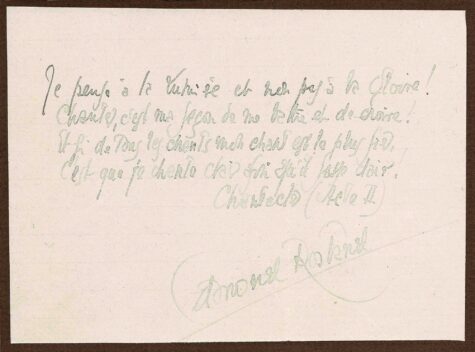 Je pense à la lumière et non pas à la gloire !
Chanter, c'est ma façon de me battre et de croire !
Et si de tous les chants mon chant est le plus fier,
C'est que je chante clair afin qu'il fasse clair !
Chantecler (Acte II)
Edmond Rostand